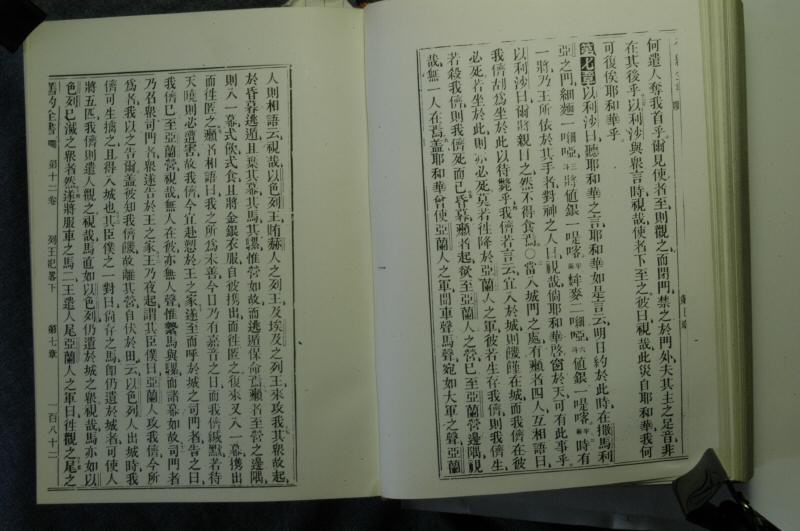 何遣人奪我首乎爾見使者至則觀之而閉門禁之於門外夫其主之足音非
在其後乎以利沙與衆言時視哉使者下至之彼曰視哉此災自耶和華我何
可復俟耶和華乎
第七章以利沙曰聽耶和華之言耶和華如是言云明日約於此時在撒馬利
亞之門細麵一嗍啞將值銀一㖷喀牟麥二嗍啞值銀一㖷喀時有
一將乃王所依於其手者對神之人曰視哉倘耶和華啓窗於天可有此事乎
以利沙曰爾將親目之然不得食焉○當入城門之處有癩者四人互相語曰
我儕何爲坐於此以待斃乎我儕若言云宜入於城則饑饉在城而我儕在彼
必死若坐於此則亦必死莫若往降於亞蘭人之軍彼若生存我儕則我儕生
若殺我儕則我儕死而已昏暮癩者起欲至亞蘭人之營已至亞蘭營邊隅視
哉無一人在焉蓋耶和華曾使亞蘭人之軍聞車聲馬聲宛如大軍之聲亞蘭
人則相語云視哉以色列王賄赫人之列王及埃及之列王來攻我其衆故起
於昏暮逃遁且棄其幕其馬其騾惟營如故而逃遁保命焉癩者至營之邊隅
則入一幕式飲式食且將金銀衣服自彼攜出而往匿之復來又入一幕攜出
而往匿之癩者相語曰我之所爲未善今日乃有嘉音之日而我儕緘默若待
天曉則必遭害故我儕今宜赴愬於王之家遂至而呼於城之司門者告之曰
我儕已至亞蘭營視哉無人在彼亦無人聲惟繫馬與騾而諸幕如故司門者
乃召衆司門者衆遂告於王之家王乃夜起謂其臣僕曰亞蘭人攻我儕今所
爲者我以之告爾蓋彼知我儕饑故離其營自伏於田云以色列人出城時我
儕可生擒之且得入城也其臣僕之一對曰尚存之馬即仍遺於城者可使人
將五匹我儕則遣人觀之視哉馬直如以色列仍遺於城之衆視哉馬亦如以
色列已滅之衆者然遂將服車之馬二王遣人尾亞蘭人之軍曰往觀之尾之
舊約全書 第十二卷 列王紀畧下 第七章 一百八十二